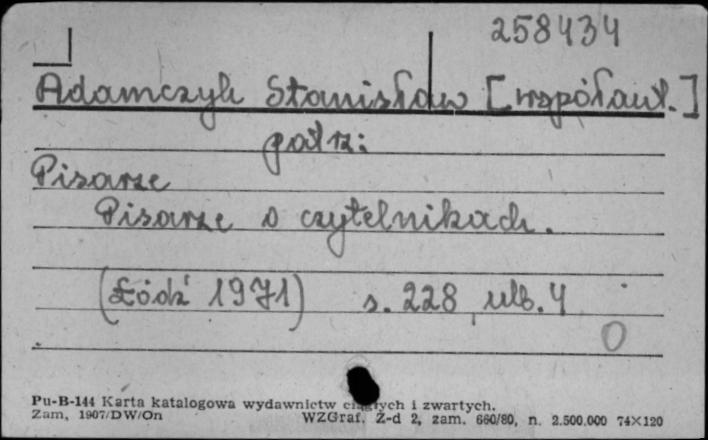 258434
Adamczyk Stanisław [współaut.]
patrz:
Pisarze
Pisarze o czytelnikach.
(Łódź 1971) s. 228, nlb. 4
0
Pu-B-144 Karta katalogowa wydawnictw ciągłych i zwartych.
Zam, 1907/DW/On WZGraf. Z-d 2, zam. 660/80, n. 2.500.000 74×120